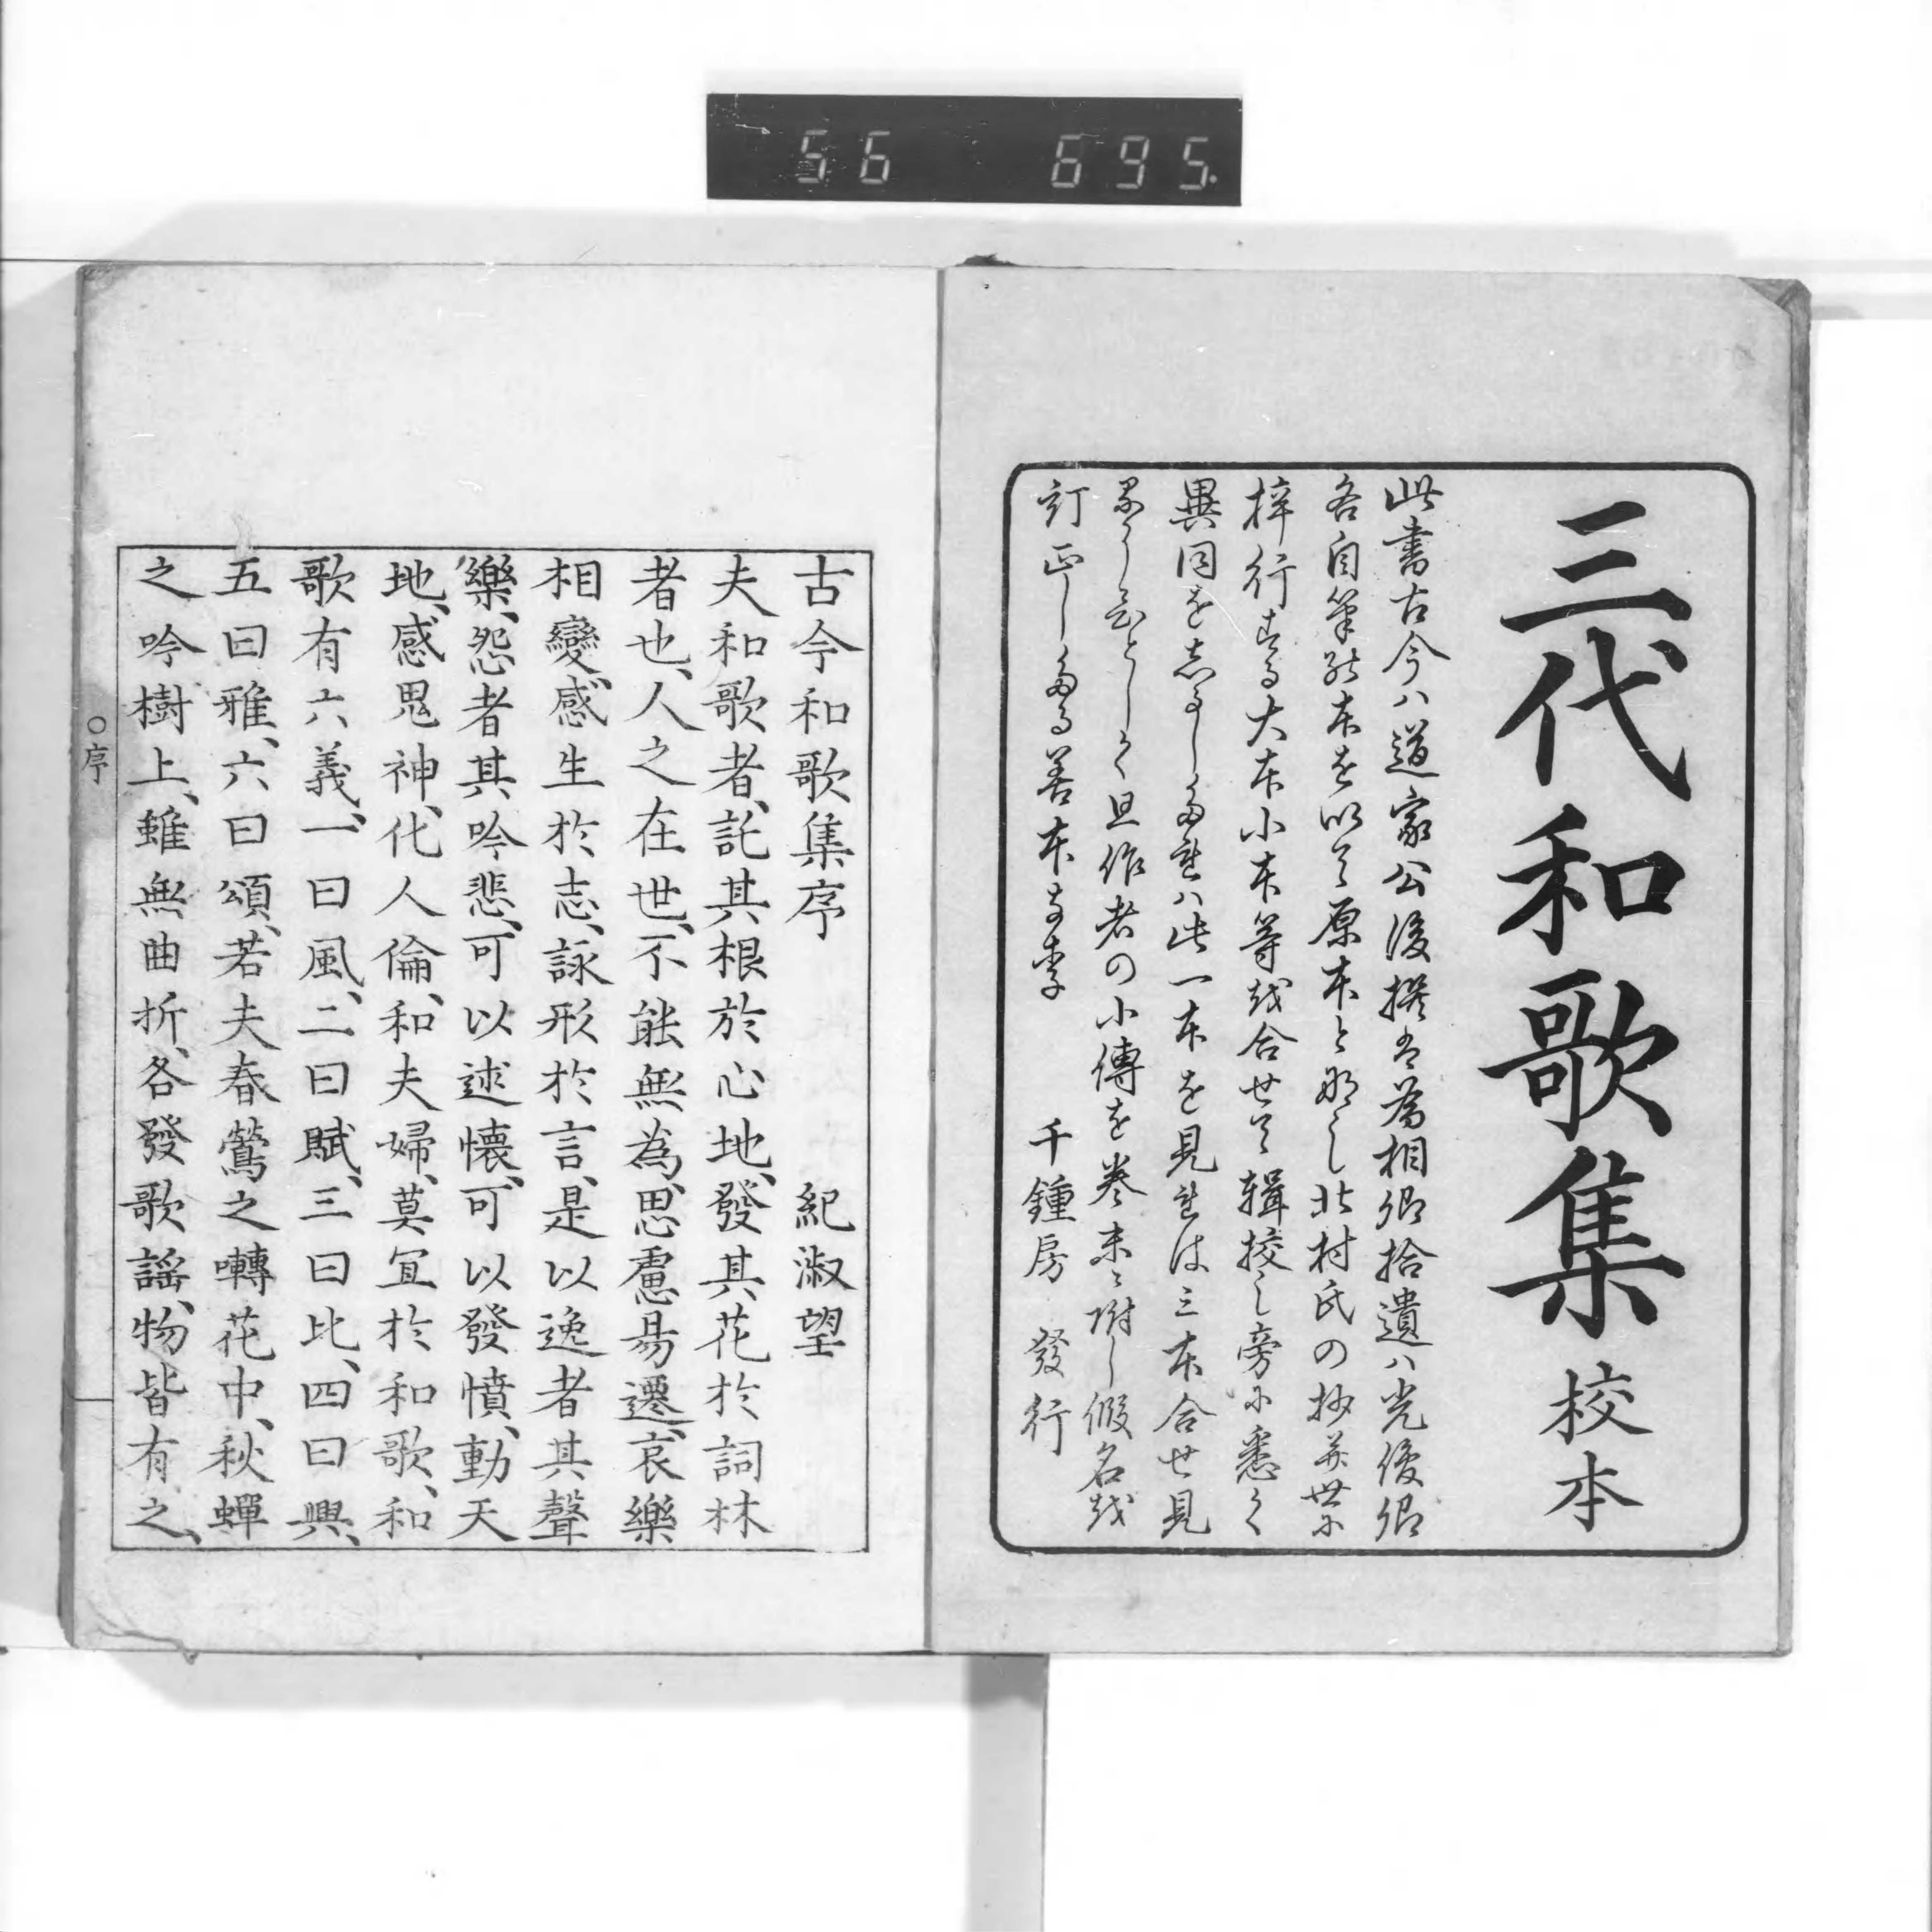 56 695.
三代和歌集 校本
此書古今ハ道家公後撰は為相卿拾遺ハ光俊卿
各自筆の本を以て原本と那し北村氏の抄并世に
梓行する大本小本等越合せて輯校し旁に悉く
異同を志るしたれハ此一本を見れは三本合せ見
るにひとしく且作者の小傳を巻末に附し假名越
訂正したる善本なり
千鍾房 發行
古今和歌集序 紀淑望
夫和歌者、託其根於心地、發其花於詞林
者也、人之在世、不能無為、思慮易遷、哀樂
相變、感生於志、詠形於言、是以逸者其聲
樂、怨者其吟悲、可以述懷、可以發憤、動天
地、感鬼神、化人倫、和夫婦、莫宜於和歌、和
歌有六義、一曰風、二曰賦、三曰比、四曰興、
五曰雅、六曰頌、若夫春鶯之囀花中、秋蟬
之吟樹上、雖無曲折、各發歌謠、物皆有之、
○序